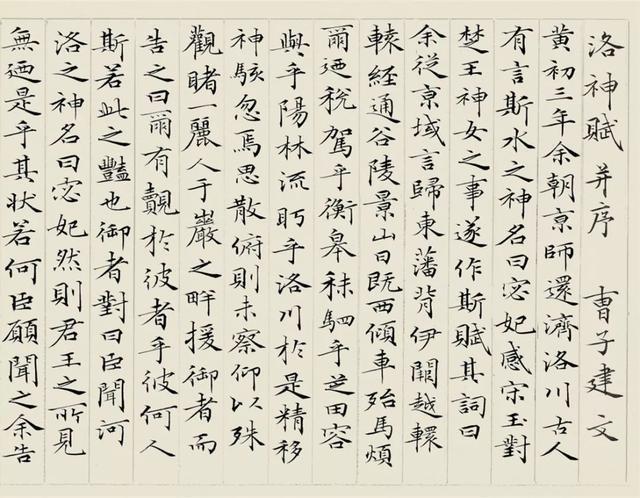 洛神賦并序 曹子建文
黃初三年余朝京師還濟洛川古人
有言斯水之神名曰宓妃感宋玉對
楚王神女之事遂作斯賦其詞曰
余從京域言歸東藩背伊闕越轘
轅経通谷陵景山日既西傾車殆馬煩
爾迺稅駕乎蘅皋秣駟乎芝田容
與乎陽林流眄乎洛川於是精移
神駭忽焉思散俯則未察仰以殊
觀睹一麗人于巖之畔援御者而
告之曰爾有覿於彼者乎彼何人
斯若此之豔也御者對曰臣聞河
洛之神名曰宓妃然則君王之所見
無迺是乎其状若何臣願聞之余告